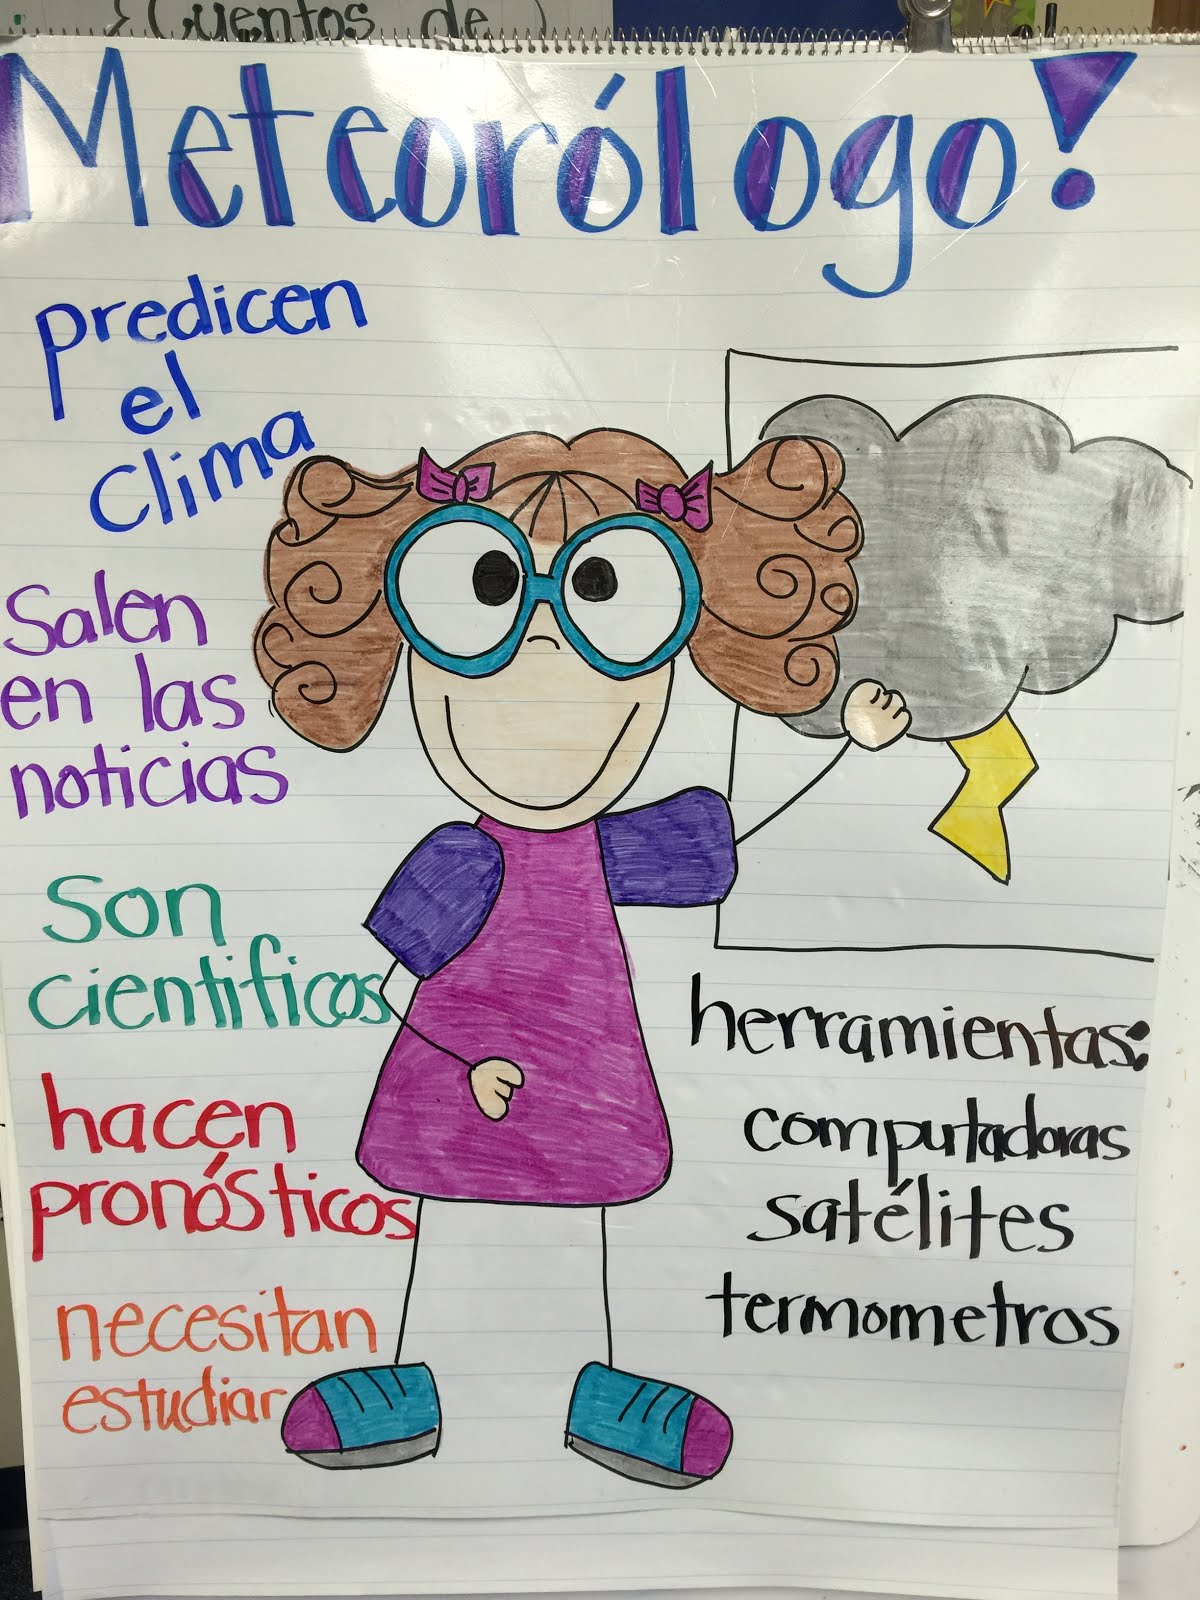 Cuentos de
Meteorólogo!
predicen
el
clima
Salen
en las
noticias
son
cientificos
hacen
pronósticos
necesitan
estudiar
herramientas:
computadoras
satélites
termometros